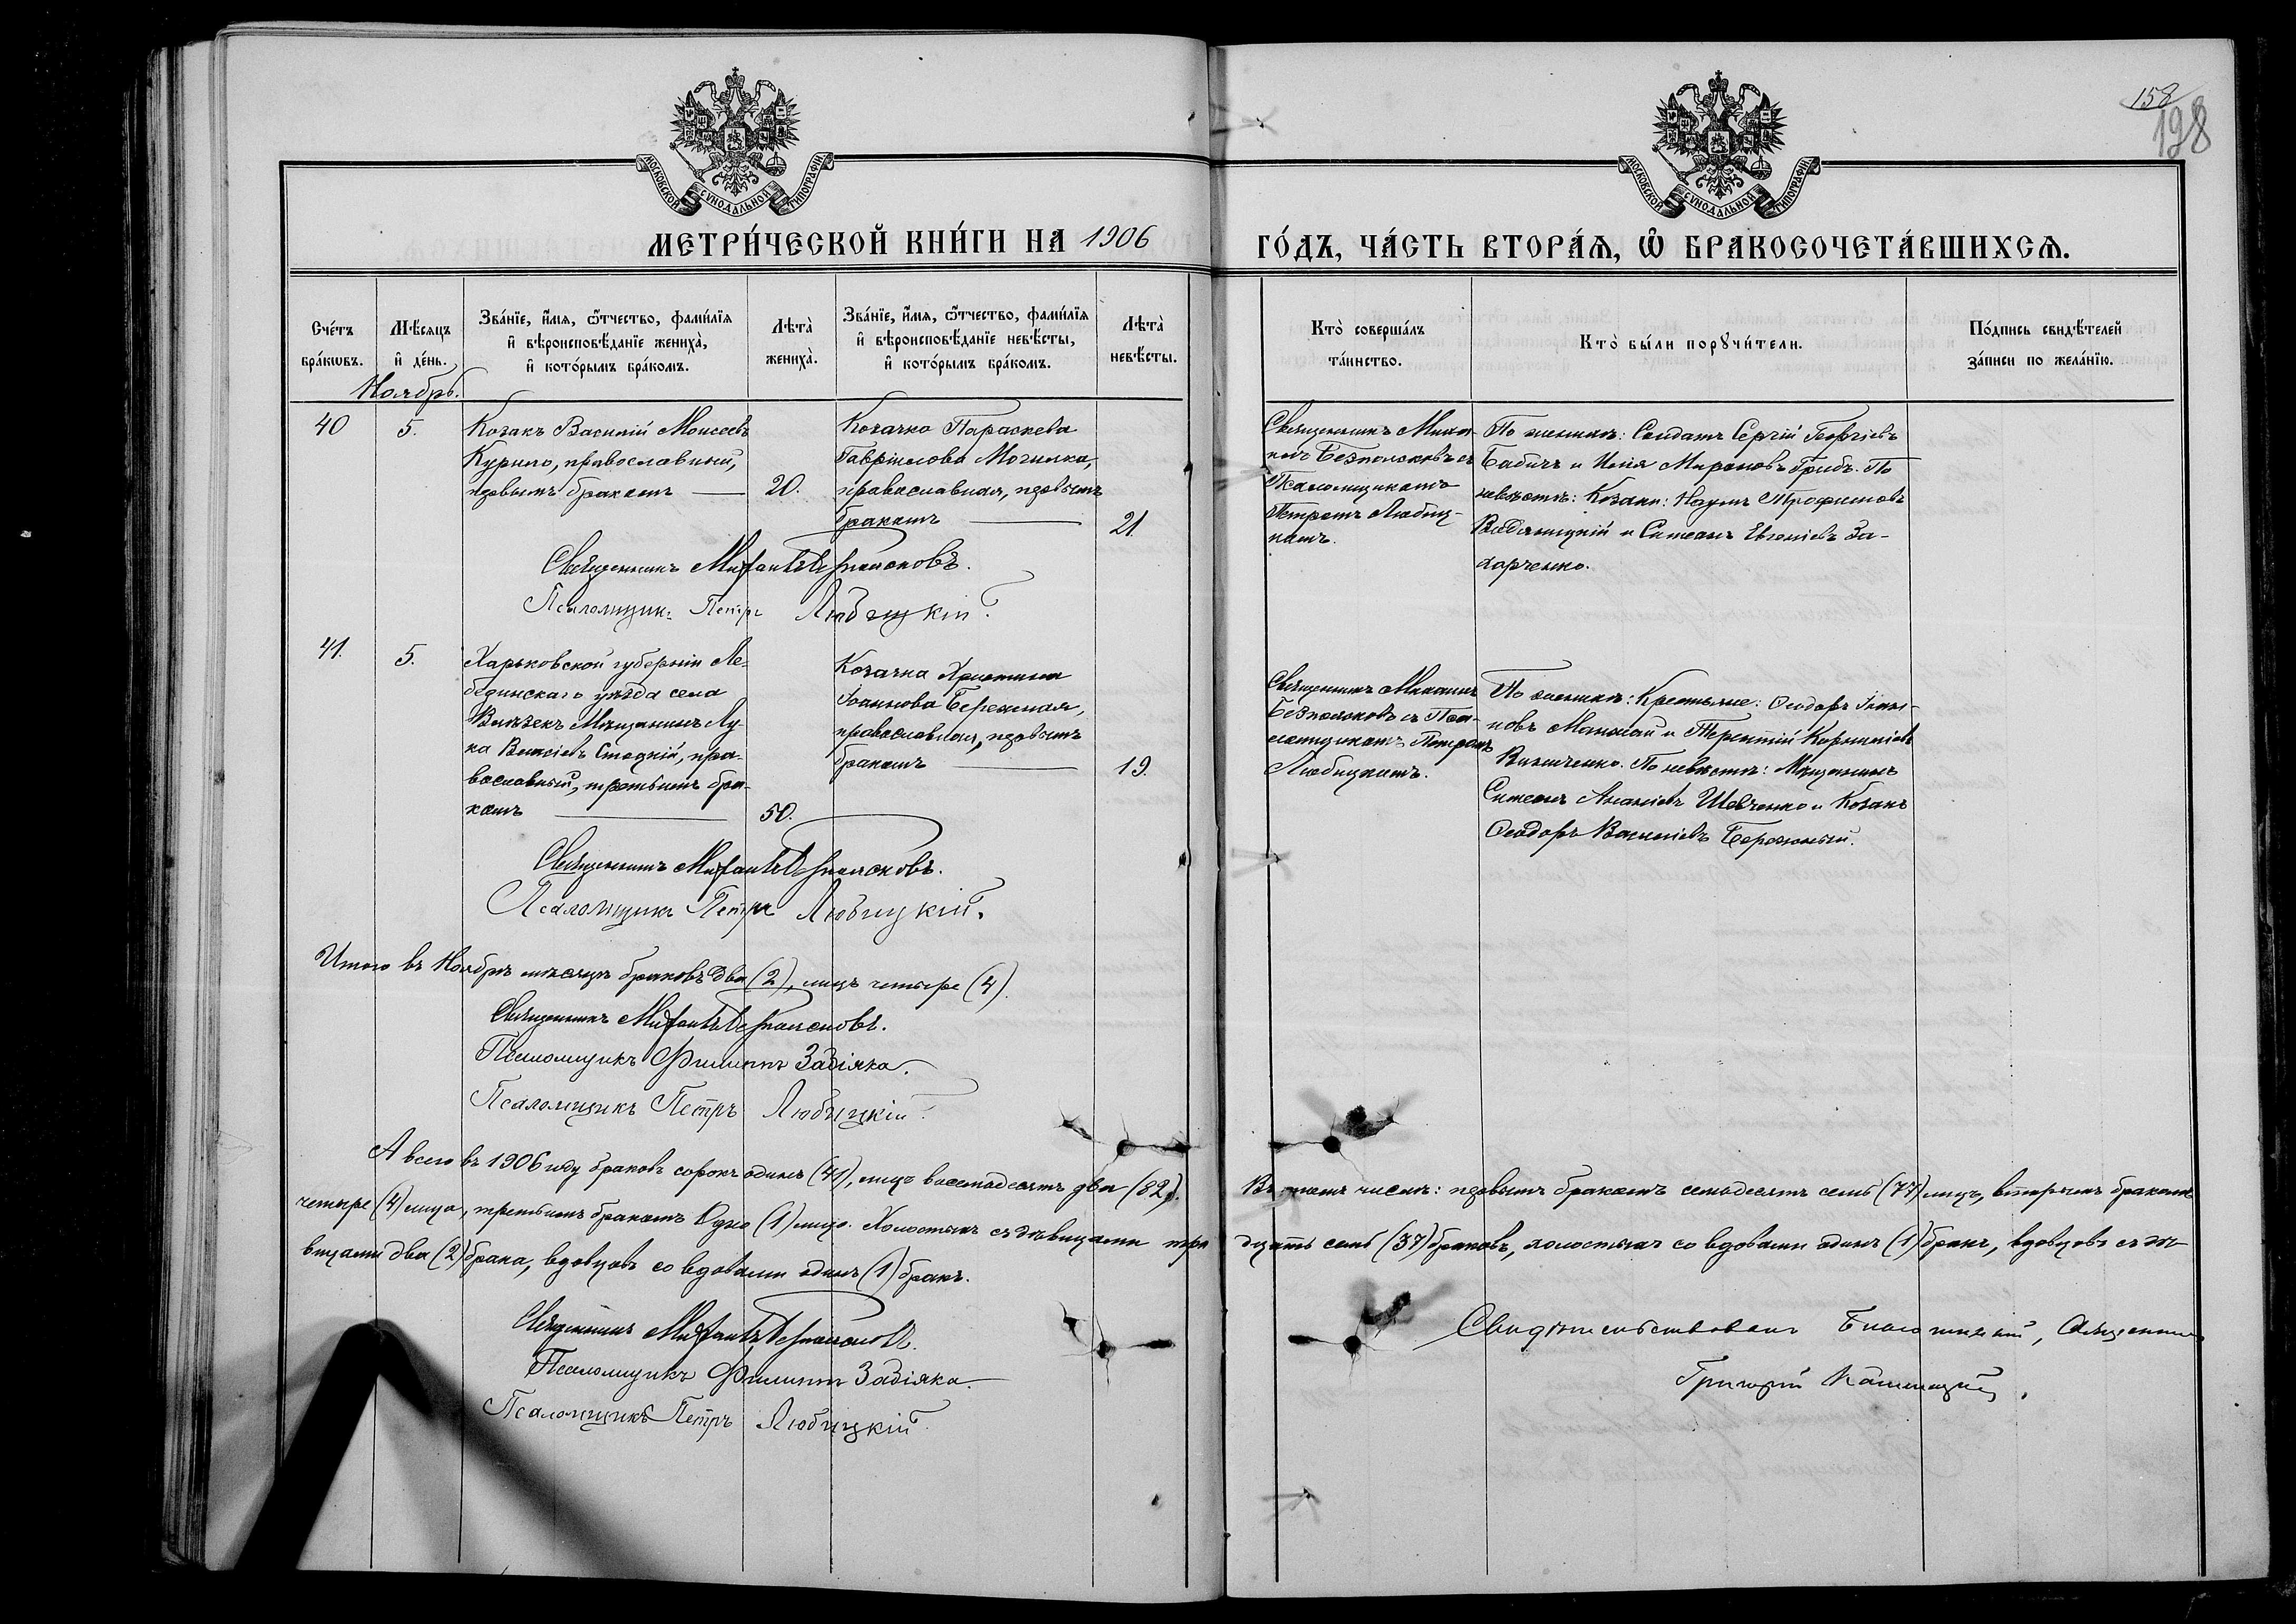 158
198
МОСКОВСКОЙ СѴНОДАЛЬНОЙ ТИПОГРАФІИ
МОСКОВСКОЙ СѴНОДАЛЬНОЙ ТИПОГРАФІИ
МЕТРИ́ЧЕСКОЙ КНИ́ГИ НА 1906
ГО́ДЪ, ЧА́СТЬ ВТОРА́Ѧ, Ѽ БРАКОСОЧЕТА́ВШИХСѦ.
Сче́тъ
бра́кѡвъ.
Мѣ́сяцъ
и҆ де́нь.
Зва́нїе, и҆́мя, ѻ҆́тчество, фами́лїя
и҆ вѣроисповѣ́данїе жениха̀,
и҆ кото́рымъ бра́комъ.
Лѣта̀
жениха̀.
Зва́нїе, и҆́мя, ѻ҆́тчество, фами́лїя
и҆ вѣроисповѣ́данїе невѣ́сты,
и҆ кото́рымъ бра́комъ.
Лѣта̀
невѣ́сты.
Кто̀ соверша́лъ
та́инство.
Кто̀ бы́ли порꙋчи́тели.
По́дпись свидѣ́телей
за́писи по жела́нїю.
Ноябрь.
40
5.
Козакъ Василій Моисеевъ
Курило, православный,
первымъ бракомъ
20.
Козачка Параскева
Гавріилова Могилка,
православная, первымъ
бракомъ
21.
Священникъ Миха-
Безпалсковъ съ
Псаломщикомъ
Петромъ Любиц-
кимъ.
По женихѣ: Солдатъ Сергій Георгіевъ
Бабичъ и Илія Мироновъ Грибъ. По
невѣстѣ: Козаки: Наумъ Трофимовъ
и Симеонъ Евгеніевъ За-
харченко.
Священникъ Михаилъ
Псаломщикъ Петръ Любицкій
41.
5.
Харьковской губерніи Ле-
бединскаго уѣзда села
Мѣщанинъ Лу-
ка Стецкій, пра-
вославный, третьимъ бра-
комъ
50.
Козачка Христина
Іоаннова Бережная,
православная, первымъ
бракомъ
19.
Священникъ Михаилъ
съ Пса-
ломщикомъ Петромъ
Любицкимъ.
По женихѣ: Крестьяне: Ѳеодоръ
и Терентій Корниліевъ
По невѣстѣ: Мѣщанинъ
Симеонъ Ананіевъ Шевченко и Козакъ
Ѳеодоръ Василіевъ Бережный.
Священникъ Михаилъ
Псаломщикъ Петръ Любицкій.
Итого въ Ноябрѣ мѣсяцѣ браковъ два (2), лицъ четыре (4).
Священникъ Михаилъ
Псаломщикъ Филиппъ Задіяка.
Псаломщикъ Петръ Любицкій
А всего въ 1906 году браковъ сорокъ одинъ (41), лицъ восемьдесятъ два (82). Въ томъ числѣ: первымъ бракомъ семьдесятъ семь (77) лицъ, вторымъ бракомъ
четыре (4) лица, третьимъ бракомъ одно (1) лицо. Холостыхъ съ дѣвицами тридцать семь (37) браковъ, холостыхъ со вдовами одинъ (1) бракъ, вдовцовъ съ дѣ-
вицами два (2) брака, вдовцовъ со вдовами одинъ (1) бракъ.
Священникъ Михаилъ
Псаломщикъ Филиппъ Задіяка.
Псаломщикъ Петръ Любицкій
Свидѣтельствовалъ Благочинный, Священникъ
Григорій